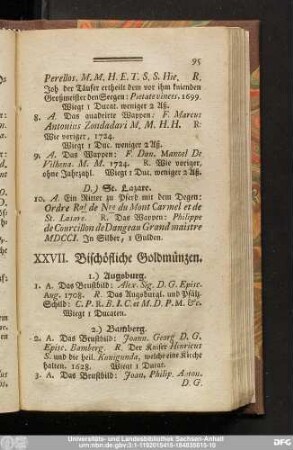 95
Perellos. M. M. H. E. T. S. S. Hie. R.
Joh der Täufer ertheilt dem vor ihm knienden
Großmeister den Seegen: Pietate vinces. 1699.
Wiegt 1 Ducat. weniger 2 Aß.
8. A. Das quadrirte Wappen: F. Marcus
Antonius Zondadari M. M. H. H. R.
Wie voriger, 1724.
Wiegt 1 Duc. weniger 2 Aß.
9. A. Das Wappen: F. Don. Manoel De
Vilhena. M. M. 1724. R. Wie voriger,
ohne Jahrzahl. Wiegt 1 Duc. weniger 2 Aß.
D.) St. Lazare.
10. A. Ein Ritter zu Pferd mit dem Degen:
Ordre Roy. de Nre du Mont Carmel et de
St. Lazare. R. Das Wappen: Philippe
de Courcillon de Dangeau Grand maistre
MDCCI. In Silber, 1 Gulden.
XXVII. Bischöfliche Goldmünzen.
1.) Augsburg.
1. A. Das Brustbild: Alex. Sig. D. G. Episc.
Aug. 1708. R. Das Augsburgl. und Pfälz.
Schild: C. P. R. B. I. C. et M. D. P. M. &c.
Wiegt 1 Ducaten.
2.) Bamberg.
2. A. Das Brustbild: Joann. Georg D. G.
Episc. Bamberg. R. Der Kaiser Henricus
S. und die heil. Konigunda, welche eine Kirche
halten. 1628. Wiegt 1 Ducat.
3. A. Das Brustbild: Joan. Philip. Anton.
D. G.
Universitäts- und Landesbibliothek Sachsen-Anhalt
DFG